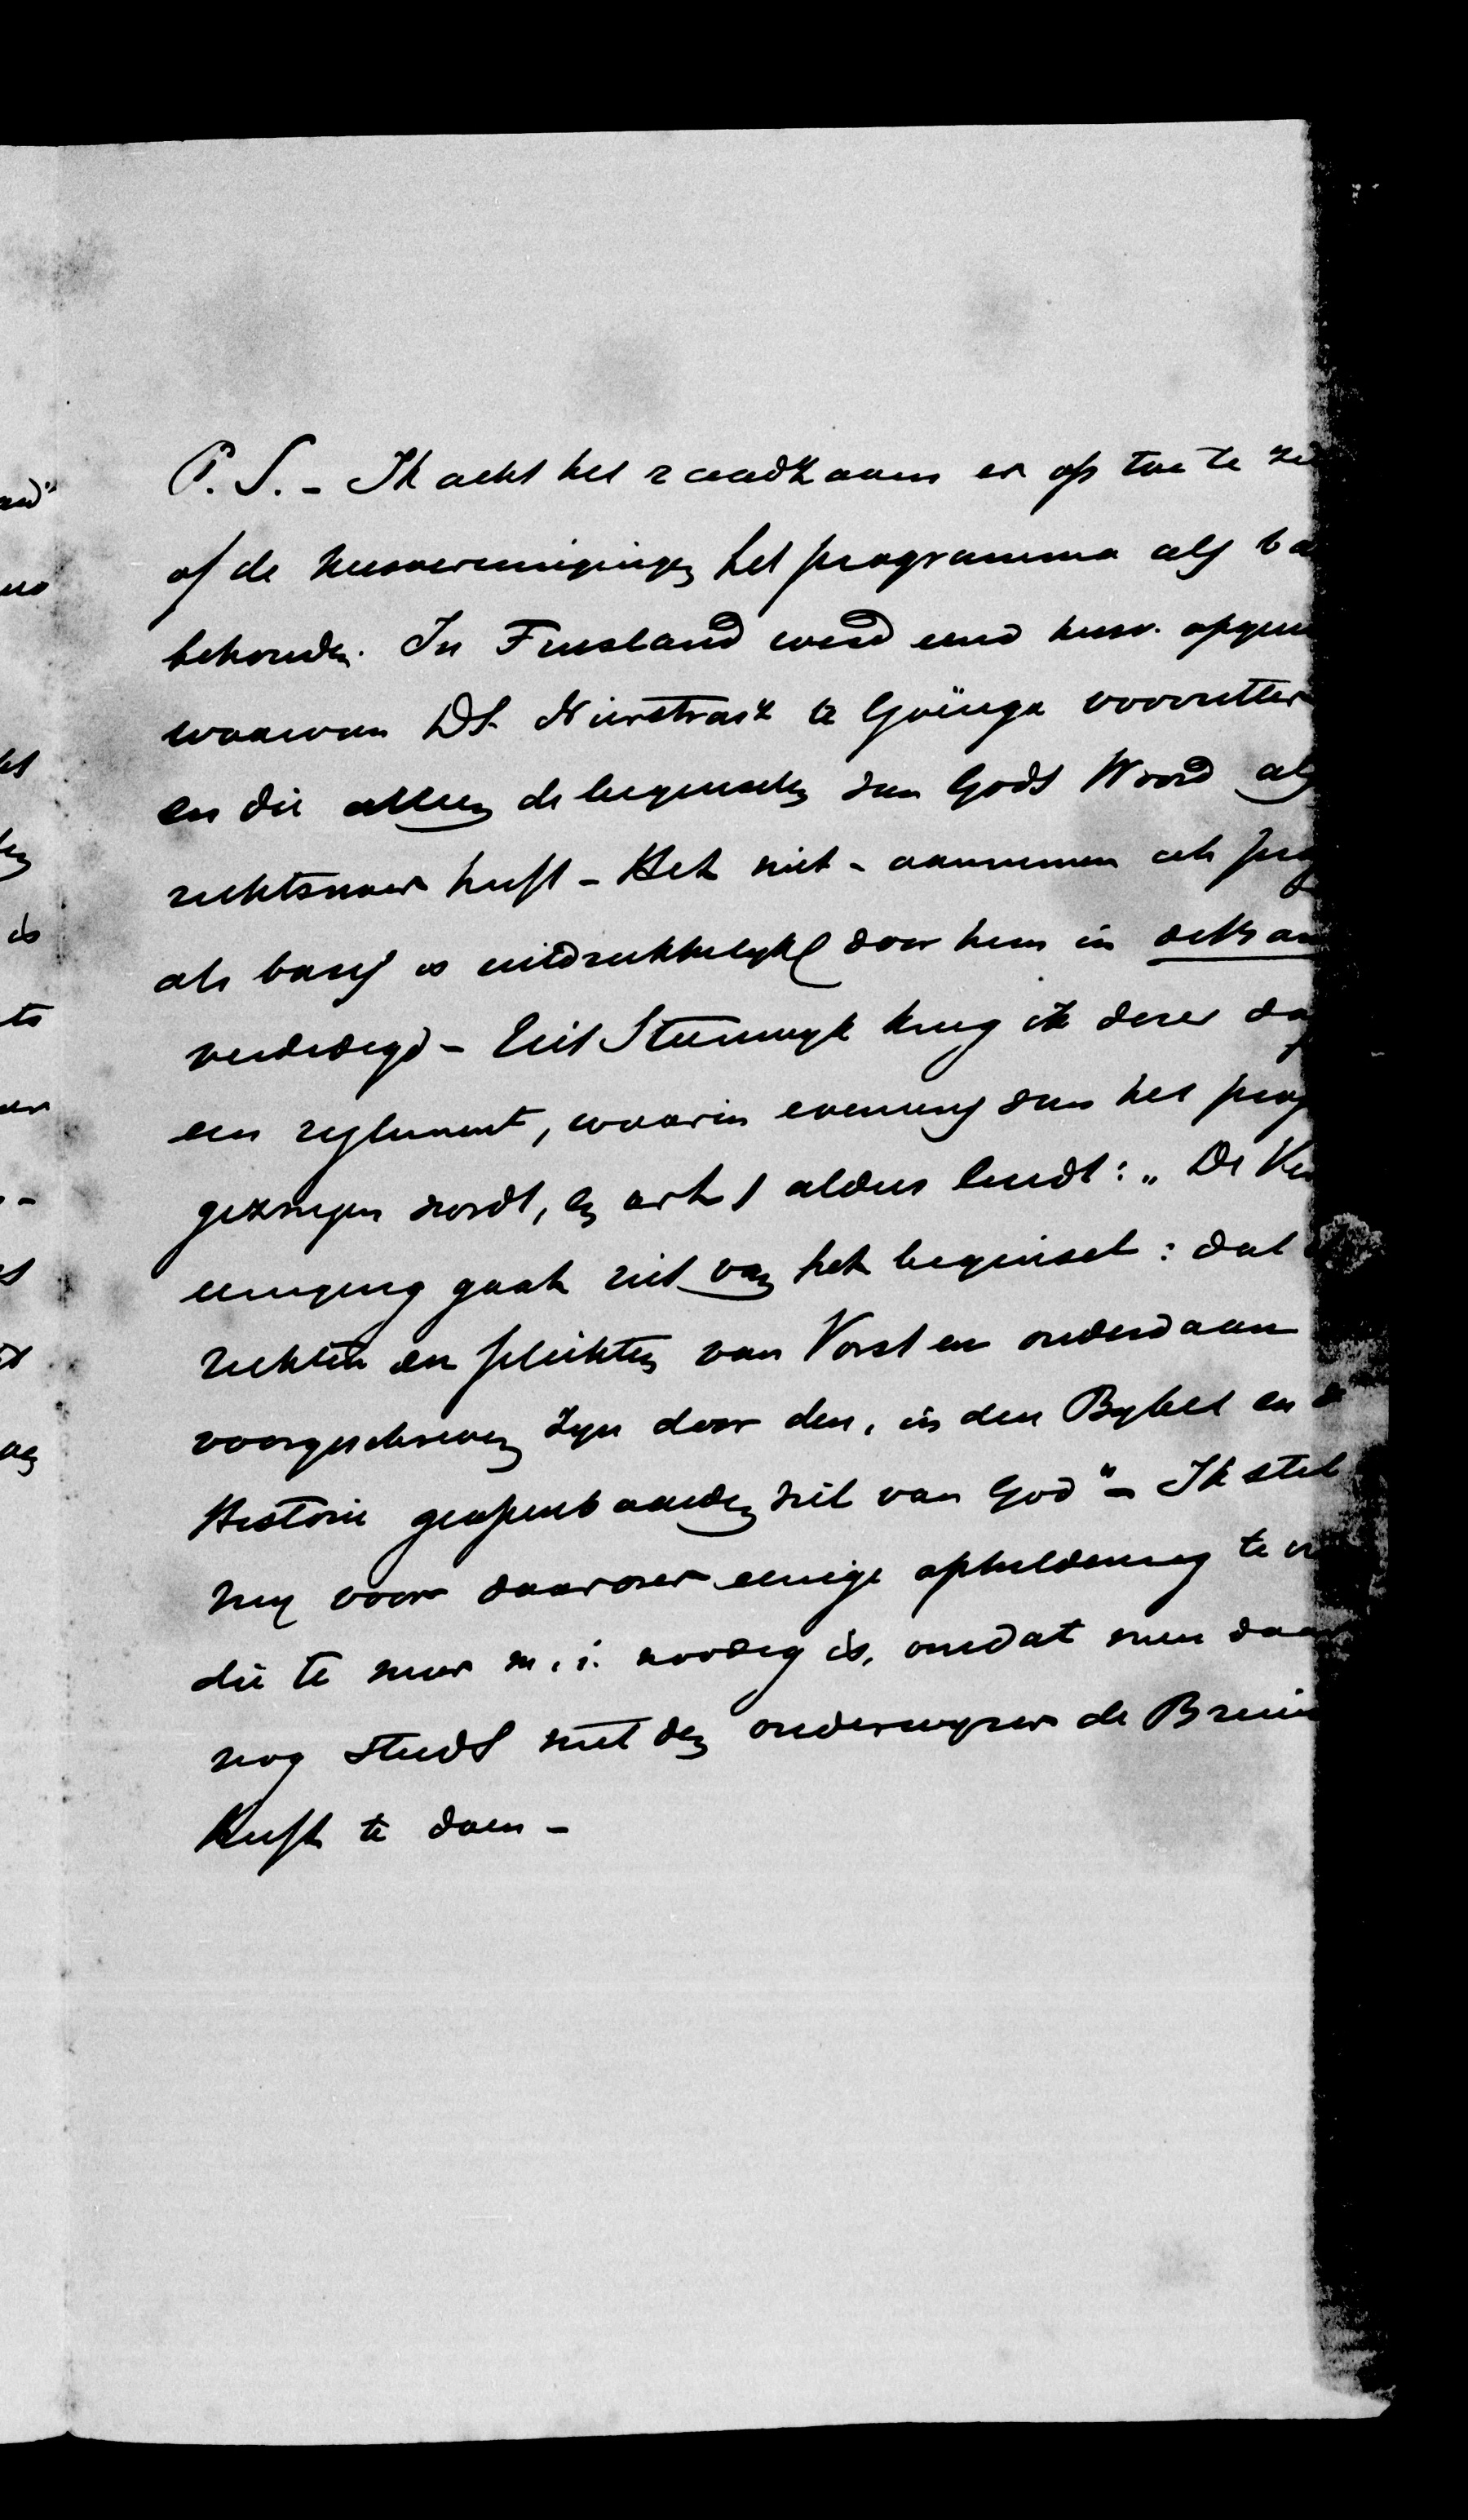 P.S. - Ik acht het raadzaam er op toe te zie
of de kiesvereenigingen het programma als ba
behouden. In Friesland werd eene kiesv. opger
waarvan Ds. Nierstrasz te Goïnga voorzitter
en die alleen de beginselen van Gods Woord als
richtsnoer heeft - Het niet-aannemen als prog
als basis is uitdrukkelijk door hem in
verdedigd - Uit Steenwijk kreeg ik dezer dag
een reglement, waarin evenmin van het prog
gezwegen wordt, en art 1 aldus luidt: „De Ver
eeniging gaat uit van het beginsel: dat d
rechten en plichten van Vorst en onderdaan
voorgeschreven zijn door den, in den Bijbel en d
Historie geopenbaarden wil van God" - Ik stel
mij voor daarover eenige opheldering te vr
die te meer m.i. noodig is, omdat men daar
nog steeds met den onderwijzer de Bruin
heeft te doen -